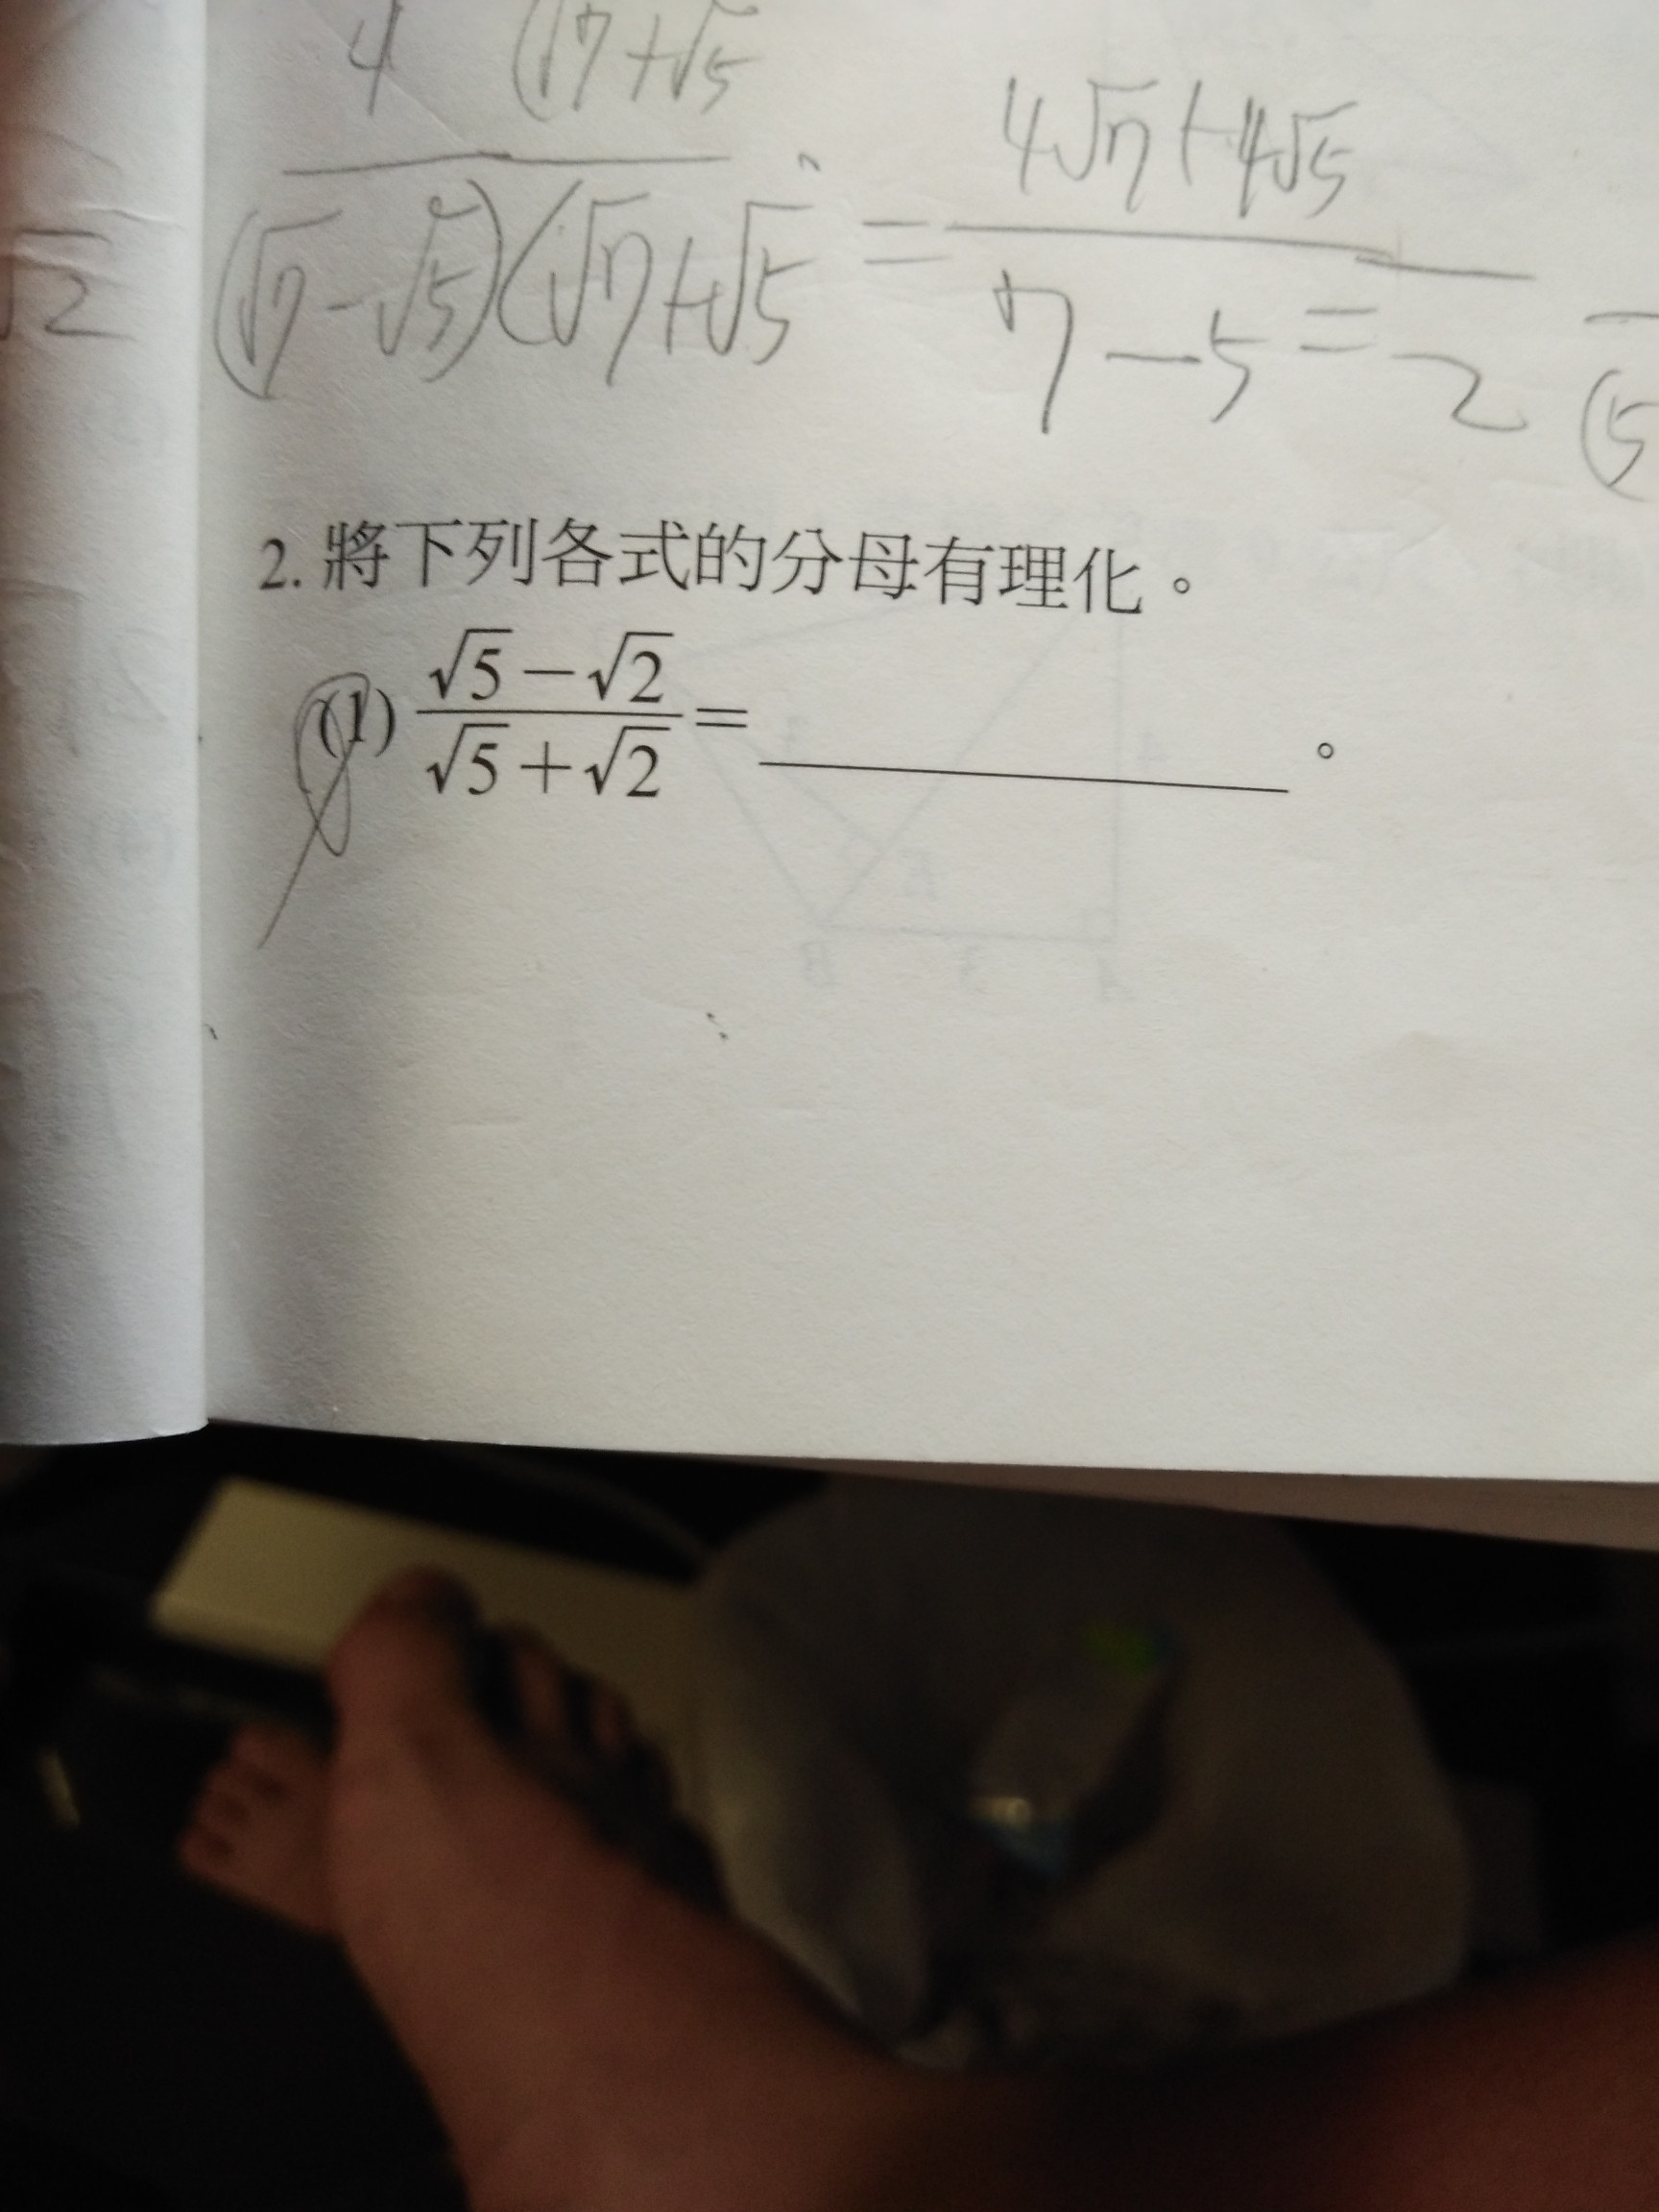 4 (√7+√5
4√7+4√5
(√7-√5)(√7+√5 = 7-5 = 2
√2
(5
2. 將下列各式的分母有理化。
(1) (√5-√2)/(√5+√2) = ________ 。